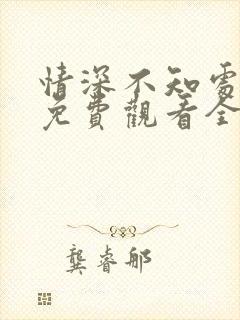 情深不知處
免費觀看全
龔睿那